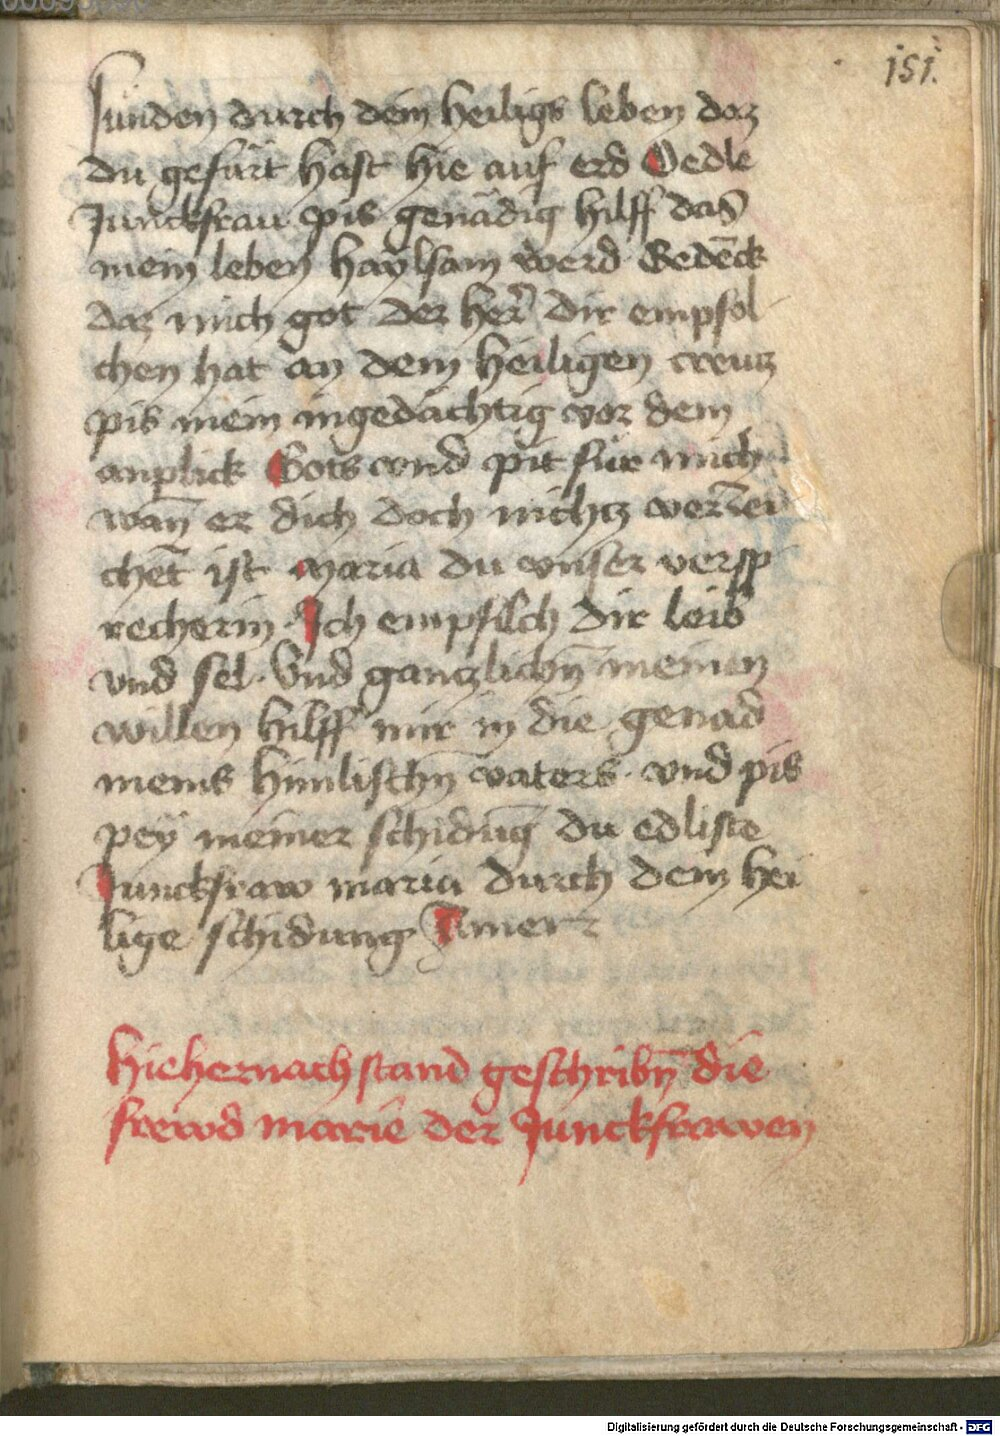 151.
sünden durch dein heiligs leben daz
du gefürt hast hie auf erd O edle
Junckfrau pis genädig hilff das
mein leben haÿlsam werd Gedēck
daz mich got der her dir empfol
chen hat an dem heiligen creutz
pis mein ingedächtig vor dem
anplick Gots vnd pit für mich
wan̄ er dich doch nichtz verzei
chēt ist maria du vnser versp
recherin Ich empfilch dir leib
vnd sel · Vnd gantzlichn̄ meinen
willen hilff mir in die genad
meins himlischn̄ vaters · vnd pis
peÿ meiner schidūg du edliste
Junckfraw maria durch dein hei
lige schidung Amen
Hie hernach stand geschribn̄ die
frewd marie der Junckfrawen
Digitalisierung gefördert durch die Deutsche Forschungsgemeinschaft - DFG